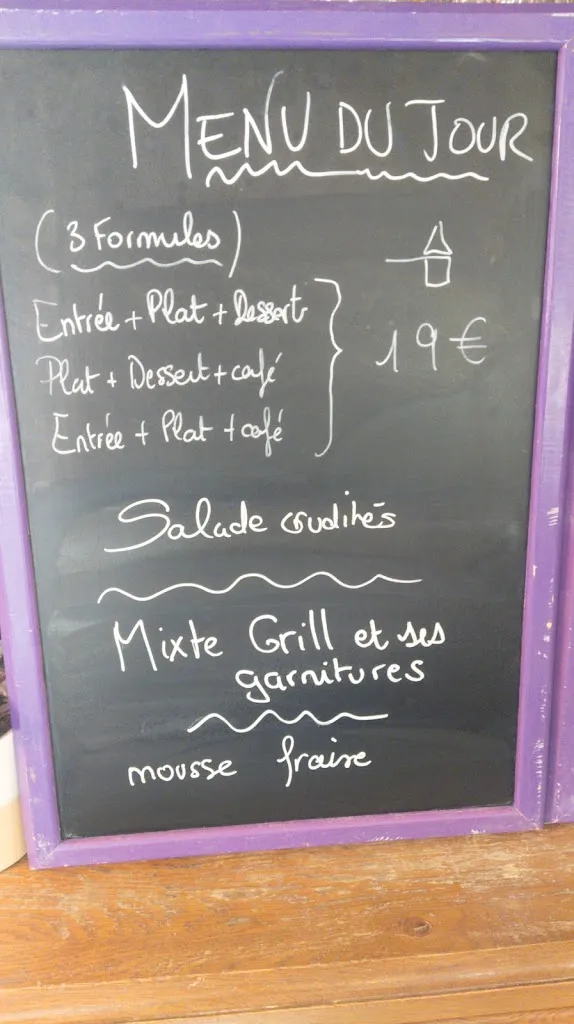 MENU DU JOUR
(3 Formules)
Entrée + Plat + Dessert
Plat + Dessert + café
Entrée + Plat + café
19€
Salade crudités
Mixte Grill et ses
garnitures
mousse fraise